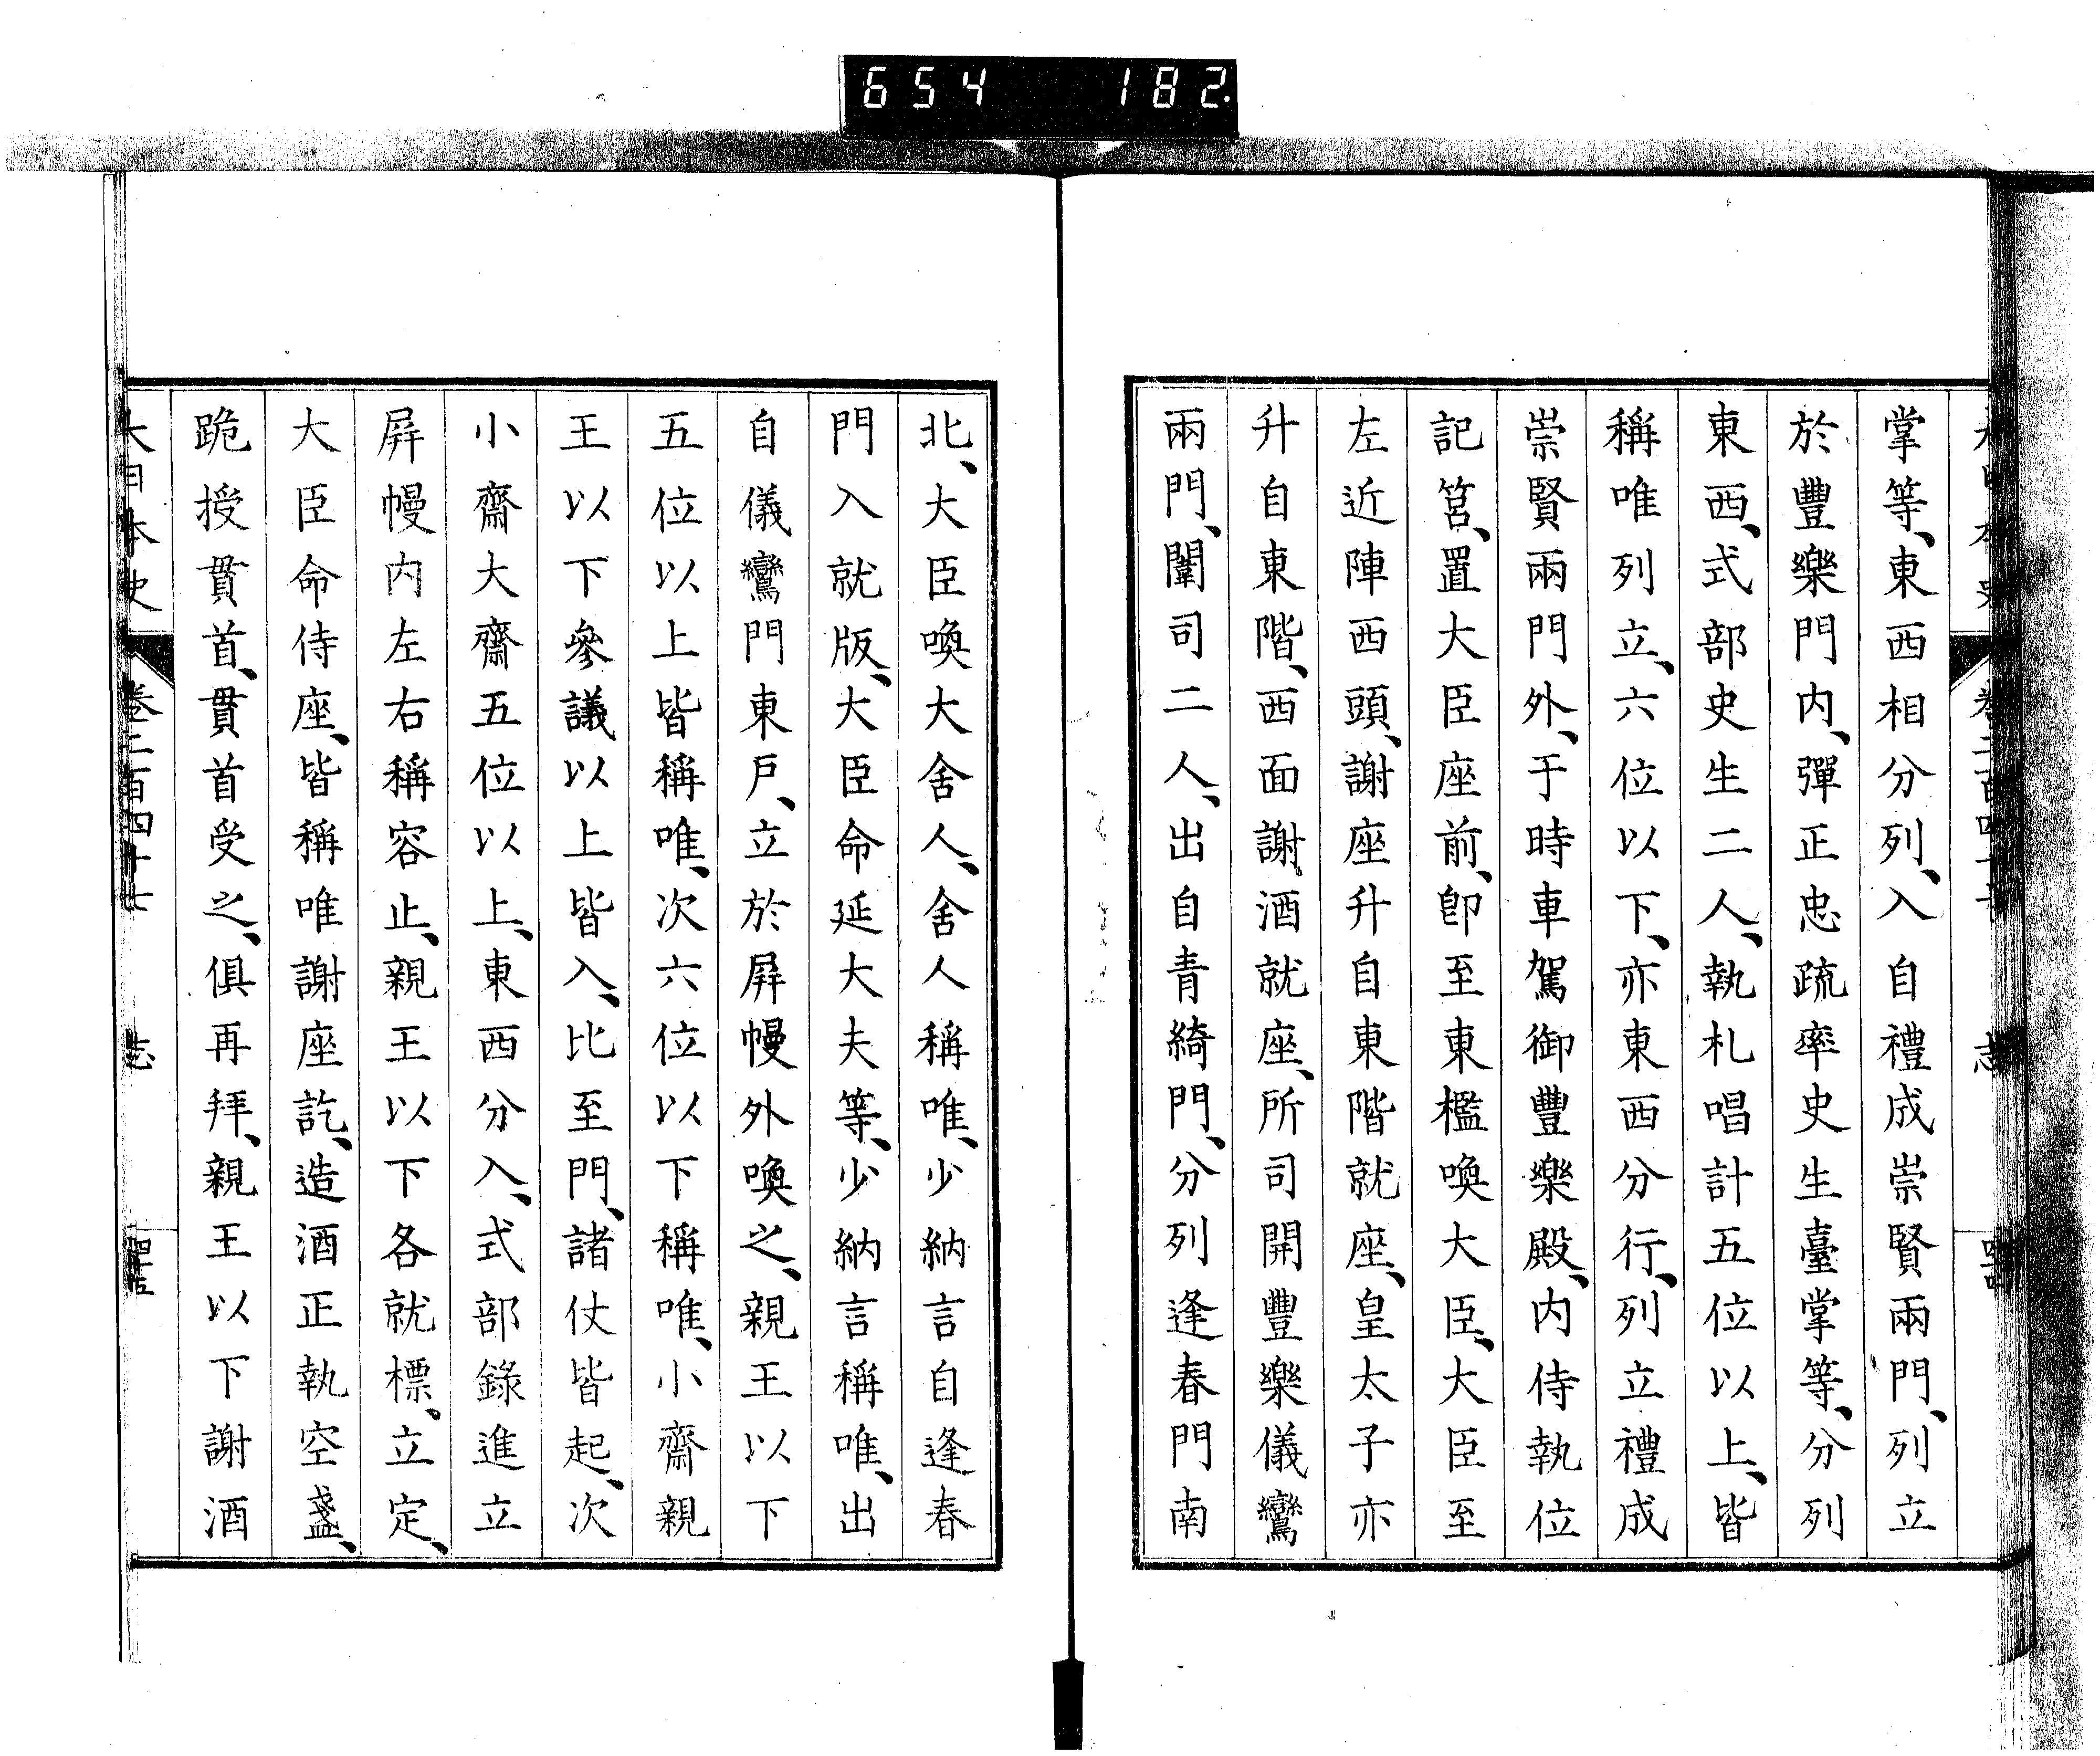 654 182
掌等、東西相分列、入自禮成崇賢兩門、列立
於豐樂門内、彈正忠疏率史生臺掌等、分列
東西、式部史生二人、執札唱計五位以上、皆
稱唯列立、六位以下、亦東西分行、列立禮成
崇賢兩門外、于時車駕御豐樂殿、内侍執位
記筥、置大臣座前、卽至東檻喚大臣、大臣至
左近陣西頭、謝座升自東階就座、皇太子亦
升自東階、西面謝酒就座、所司開豐樂儀鸞
兩門、闈司二人、出自青綺門、分列逢春門南
北、大臣喚大舍人、舍人稱唯、少納言自逢春
門入就版、大臣命延大夫等、少納言稱唯、出
自儀鸞門東戶、立於屏幔外喚之、親王以下
五位以上皆稱唯、次六位以下稱唯、小齋親
王以下參議以上皆入、比至門、諸仗皆起、次
小齋大齋五位以上、東西分入、式部錄進立
屏幔内左右稱容止、親王以下各就標、立定、
大臣命侍座、皆稱唯謝座訖、造酒正執空盞、
跪授貫首、貫首受之、俱再拜、親王以下謝酒
大日本史 卷二百四十七 志